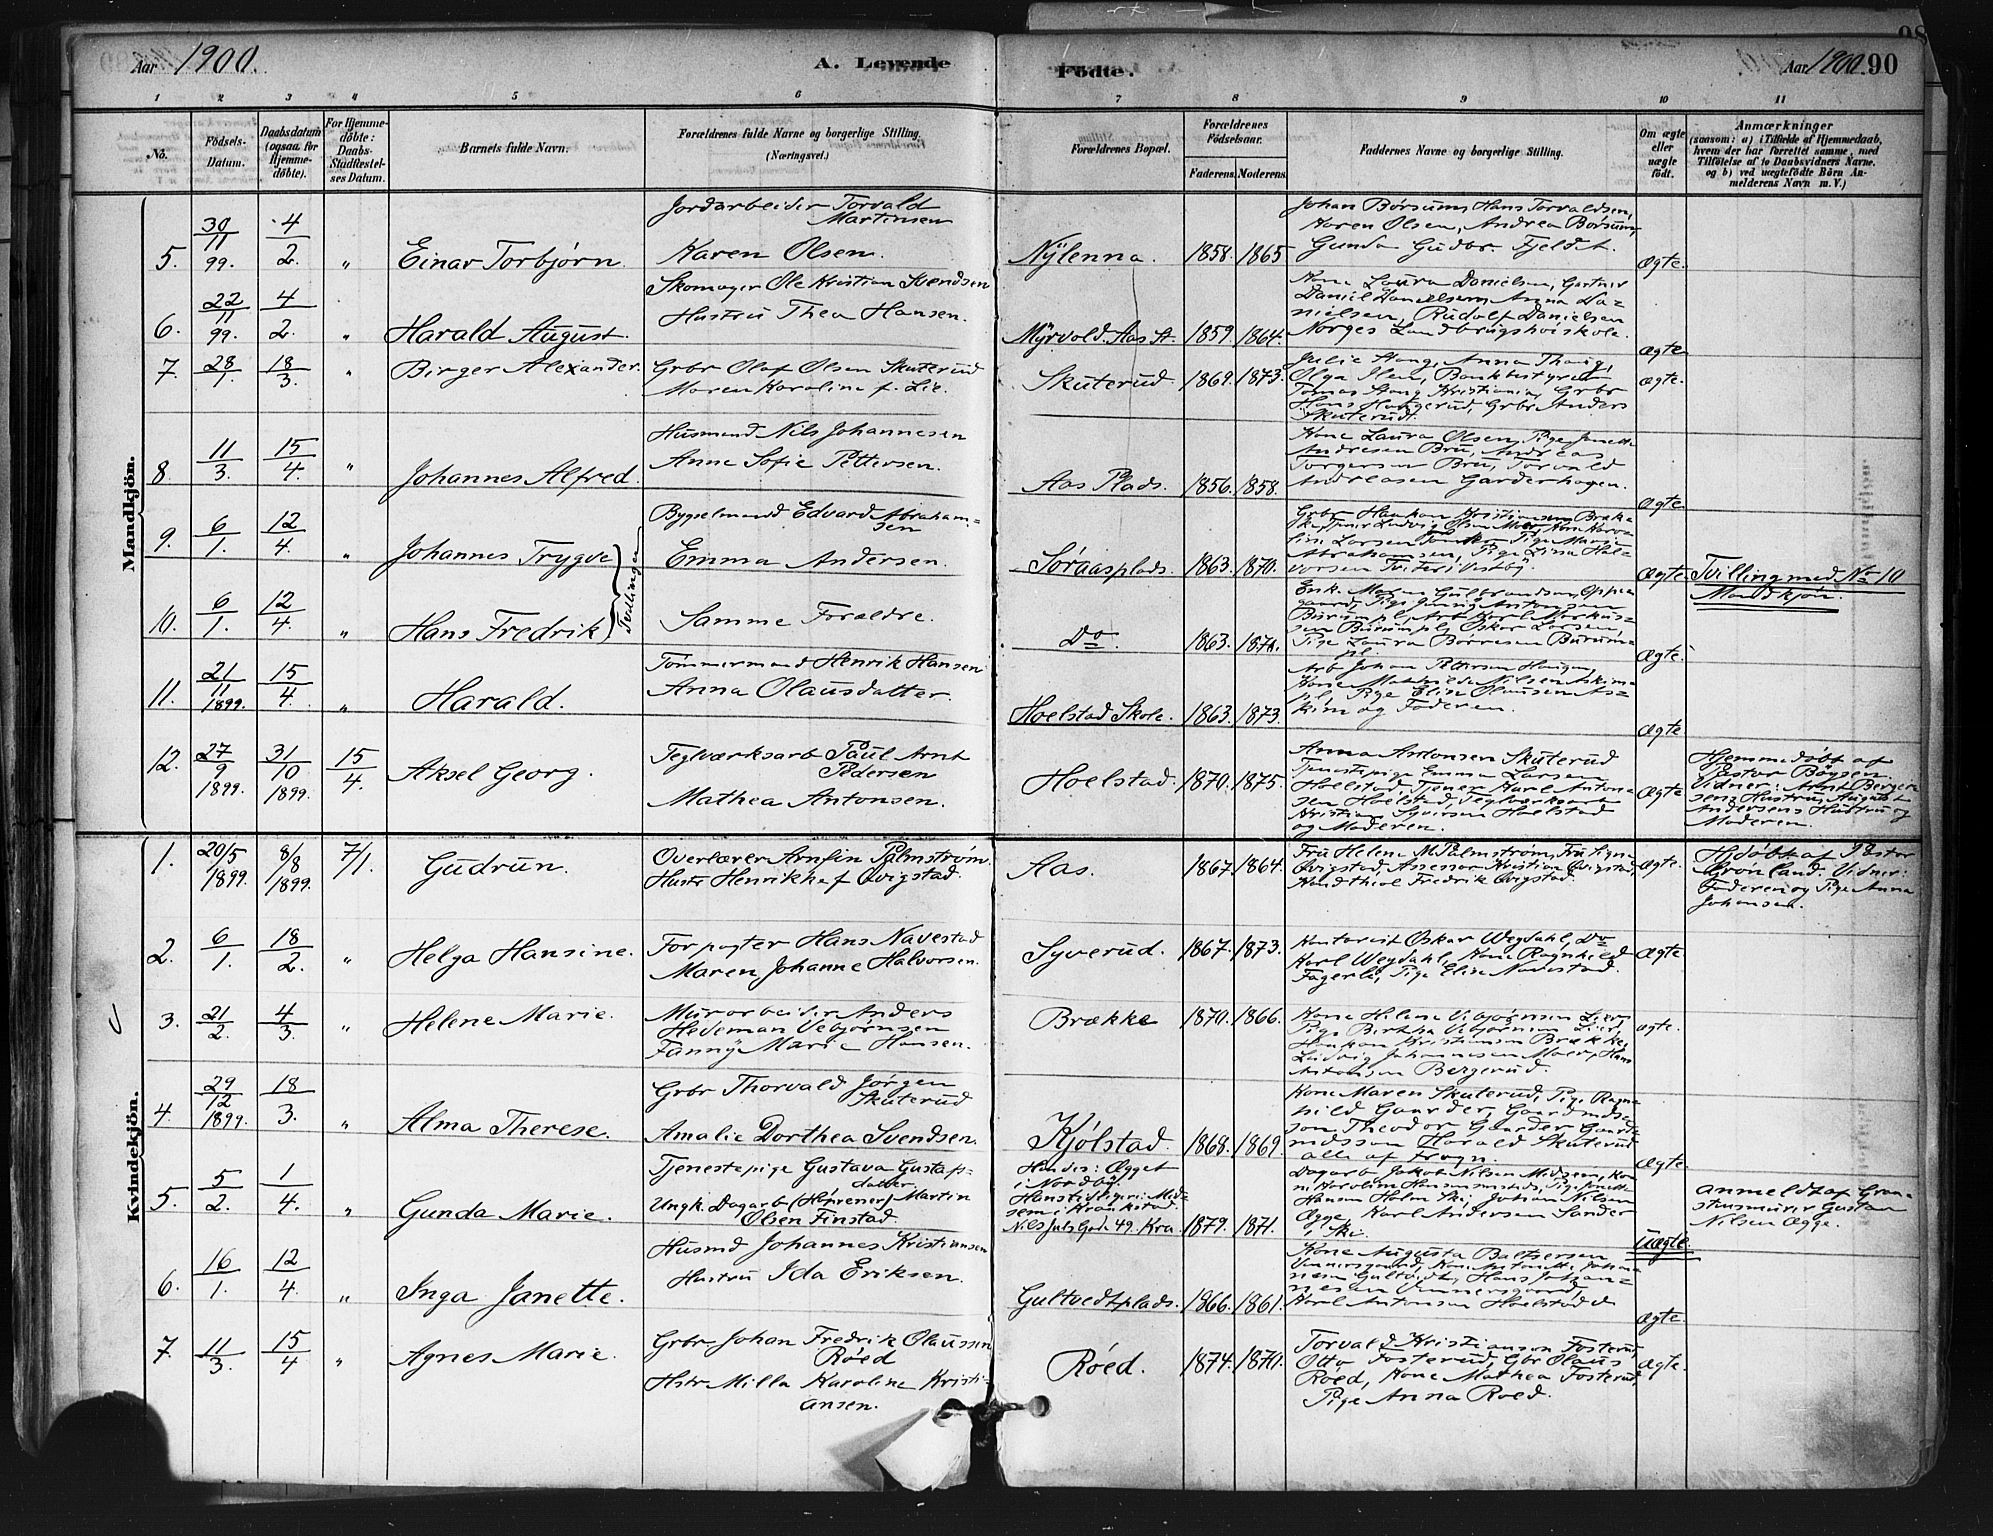 Aar 1900.
A. Levende
Födte.
Aar 1900. 90
1 2 3 4 5 6 7 8 9 10 11
No.
Födsels-Datum.
Daabsdatum (ogsaa for Hjemme-döbte).
For Hjemme-döbte: Daabs-Stadfæstel-ses Datum.
Barnets fulde Navn.
Forældrenes fulde Navne og borgerlige Stilling.
(Næringsvei.)
Forældrenes Bopæl.
Forældrenes Födselsaar.
Faderens. Moderens.
Faddernes Navne og borgerlige Stilling.
Om ægte eller uægte födt.
Anmærkninger
(saasom: a) i Tilfælde af Hjemmedaab,
hvem der har forrettet samme, med
Tilföielse af to Daabsvidners Navne.
og b) ved uægtefödte Börn An-
melderens Navn m. V.)
Mandkjön.
5. 30/11 99. 4/2 " Einar Torbjørn.
Jordarbeider Torvald
Martinsen
Karen Olsen.
Nÿlenna. 1858. 1865
Johan Børsum, Hans Torvaldsen,
Karen Olsen, Andrea Børsum,
Gunda Gudbr Fjeldet.
Ægte.
6. 22/11 99. 4/2. " Harald August
Skomager Ole Kristian Svendsen
Hustru Thea Hansen.
Myrvold. Aas St. 1859. 1864.
Kone Laura Danielsen, Gartner
Daniel Danielsen, Anna Da-
nielsen, Rudolf Danielsen
Norges Landbrugshøiskole.
Ægte
7. 28/1. 18/3. " Birger Alexander.
Grbr Olaf Olsen Skuterud
Maren Karoline f. Lie.
Skuterud. 1869. 1873.
Julie Stang, Anna Thaug,
Olga Ilen, Bankbestyrer
Tomas Stang Kristiania, Grbr
Hans Haugerud, Grbr Anders
Skuterud.
Ægte.
8. 11/3. 15/4. " Johannes Alfred.
Husmand Nils Johannesen
Anne Sofie Pettersen.
Aas Plads. 1856. 1858.
Kone Laura Olsen, Pige Janette
Andresen Bru, Andreas
Torgersen Bru, Torvald
Andreasen Garderhagen.
Ægte.
9. 6/1. 12/4. " Johannes Trygve
Tvillinger
Bygselmand Edvard Abraham-
sen
Emma Andersen.
Søraasplads. 1863. 1870.
Grbr Haakon Kristiansen Bræk-
ke, Tjener Ludvig Olsen Moer, Kone Karo-
line Larsen, Pige Marie
Abrahamsen, Pige Lina Hal-
vorsen Tveter i Vestby.
Ægte. Tvilling med No 10
Mandkjøn.
10. 6/1. 12/4. " Hans Fredrik
Samme Forældre.
Do. 1863. 1870.
Enk. Maren Gulbrandsen, Oppe-
gaard, Pige Jenny Antonsen
Burumpl, Arb. Karl Markus-
sen Burumpl, Oskar Larsen,
Pige Laura Børresen Burum-
pl.
Ægte.
11. 21/11 1899. 15/4. " Harald.
Tømmermand Henrik Hansen
Anna Olausdatter.
Hoelstad Skole. 1863. 1873.
Arb Johan Pettersen Haugen,
Kone Mathilde Nilsen Askim-
pl, Pige Elise Olaussen As-
kim og Faderen.
Ægte
12. 27/9 1899. 31/10 1899. 15/4. Aksel Georg.
Teglværksarb Paul Arnt
Pedersen
Mathea Antonsen.
Hoelstad. 1870. 1875.
Anna Antonsen Skuterud
Tjenestepige Emma Larsen
Hoelstad, Tjener Karl Antons-
sen Hoelstad, Teglværksarb
Kristian Syversen Hoelstad
og Moderen.
Ægte
Hjemmedøbt af
Pastor Böÿsen.
Vidner: Arnt Berger-
sens Hustru, August
Andersens Hustru og
Moderen.
Kvindekjön.
1. 20/5 1899. 8/8 1899. 7/1. Gudrun.
Overlærer Arnfin Palmstrøm.
Hustr Henrikke f Qvigstad.
Aas. 1867. 1864.
Fru Helene M. Palmstrøm, Fru Signe
Qvigstad, Assessor Kristian Qvigstad,
Kand theol Fredrik Qvigstad.
Ægte.
Hjdøbt af Pastor
Grönland. Vidner:
Faderen og Pige Anna
Johansen.
2. 6/1. 18/2. " Helga Hansine.
Forpagter Hans Navestad
Maren Johanne Halvorsen.
Syverud. 1867. 1873.
Kontorist Oskar Wegdahl, Do
Karl Wegdahl, Kone Ragnhild
Fagerli, Pige Elise Navestad.
Ægte.
3. 21/2. 4/3. " Helene Marie.
Murarbeider Anders
Hedeman Vebjørnsen
Fanny Marie Hansen.
Brække 1870. 1866.
Kone Helene Vebjørnsen Lier,
Pige Bertha Vebjørnsen Lier,
Haakon Kristiansen Brække,
Ludvig Johannesen Moer, Hans
Antonsen Bergerud.
Ægte.
4. 29/12 1899. 18/3. " Alma Therese.
Grbr Thorvald Jørgen
Skuterud
Amalie Dorthea Svendsen.
Kjölstad. 1868. 1869.
Kone Maren Skuterud, Pige Ragn-
hild Gaarder, Gaardmds-
søn Theodor Gaarder, Gaard-
mdssøn Harald Skuterud
alle af Frogn.
Ægte.
5. 5/2. 1/4. " Gunda Marie.
Tjenestepige Gustava Gustavs-
datter
Ungk. Dagarb Martin
Olsen Finstad.
Hendes: Ægget
i Nordby
Hans tidligere: Mid-
sem i Kraakstad.
Nils Juels Gade 49. Kra. 1879. 1871.
Dagarb Jakob Nilsen Midsem, Ko-
Hansen Holm Ski, Johan Nilsen
Ægge, Karl Andersen Sander
i Ski.
Uægte.
Anmeldt af Grav-
Nilsen Ægge.
6. 16/1. 12/4. " Inga Janette.
Husmd Johannes Kristiansen
Hustru Ida Eriksen.
Gultvedtplads. 1866. 1861.
Kone Augusta Baltsersen
Vinnersgaard, Kone Antonette Johan-
nesen Gultvedt, Hans Johan-
nesen Vinnersgaard,
Karl Antonsen Hoelstad.
Ægte.
7. 11/3. 15/4 " Agnes Marie.
Grbr. Johan Fredrik Olaussen
Røed
Hstr Milla Karoline Kristi-
ansen.
Røed. 1874. 1870.
Torvald Kristianson Fosterud
Otto Fosterud, Gbr Olaus
Røed, Kone Mathea Fosterud,
Pige Anna Roed.
Ægte.